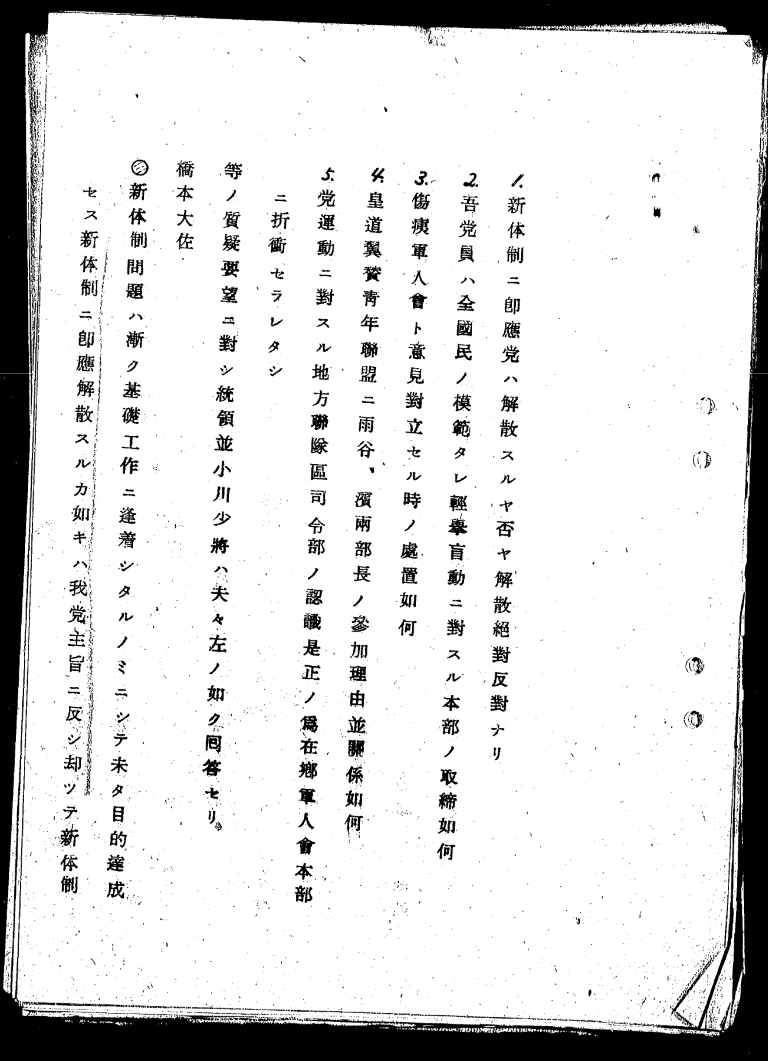 1. 新体制ニ即應党ハ解散スルヤ否ヤ解散絕對反對ナリ
2. 吾党員ハ全國民ノ模範タレ輕擧盲動ニ對スル本部ノ取締如何
3. 傷痍軍人會ト意見對立セル時ノ處置如何
4. 皇道翼賛靑年聯盟ニ雨谷、濱兩部長ノ參加理由並關係如何
5. 党運動ニ對スル地方聯隊區司令部ノ認識是正ノ爲在鄕軍人會本部
ニ折衝セラレタシ
等ノ質疑要望ニ對シ統領並小川少將ハ夫々左ノ如ク囘答セリ。
橋本大佐
◎新体制問題ハ漸ク基礎工作ニ逢着シタルノミニシテ未タ目的達成
セス新体制ニ卽應解散スルカ如キハ我党主旨ニ反シ却ツテ新体制